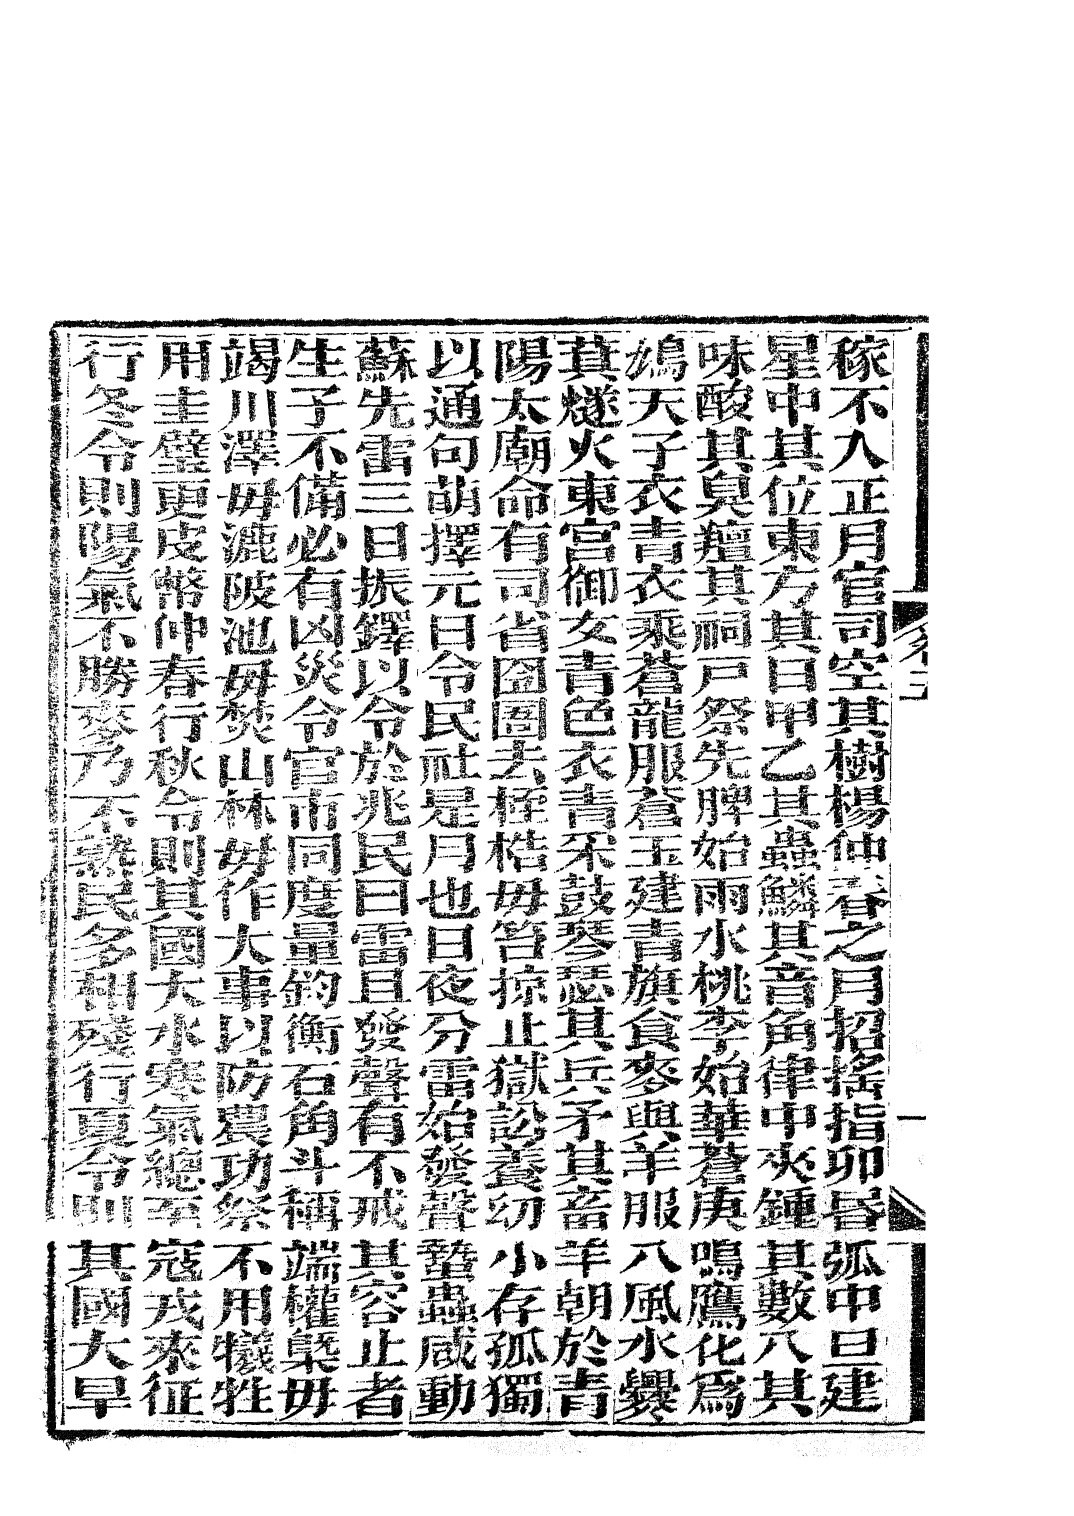 稼不入正月官司空其樹楊仲春之月招搖指卯昏弧中旦建
星中其位東方其日甲乙其蟲鱗其音角律中夾鍾其數八其
味酸其臭羶其祠戶祭先脾始雨水桃李始華蒼庚鳴鷹化爲
鳩天子衣青衣乘蒼龍服蒼玉建青旗食麥與羊服八風水爨
萁燧火東宮御女青色衣青采鼓琴瑟其兵矛其畜羊朝於青
陽太廟命有司省囹圄去桎梏毋笞掠止獄訟養幼小存孤獨
以通句萌擇元日令民社是月也日夜分雷始發聲蟄蟲咸動
蘇先雷三日振鐸以令於兆民曰雷且發聲有不戒其容止者
生子不備必有凶災令官市同度量鈞衡石角斗稱端權槩毋
竭川澤毋漉陂池毋焚山林毋作大事以防農功祭不用犧牲
用圭璧更皮幣仲春行秋令則其國大水寒氣總至寇戎來征
行冬令則陽氣不勝麥乃不熟民多相殘行夏令則其國大旱